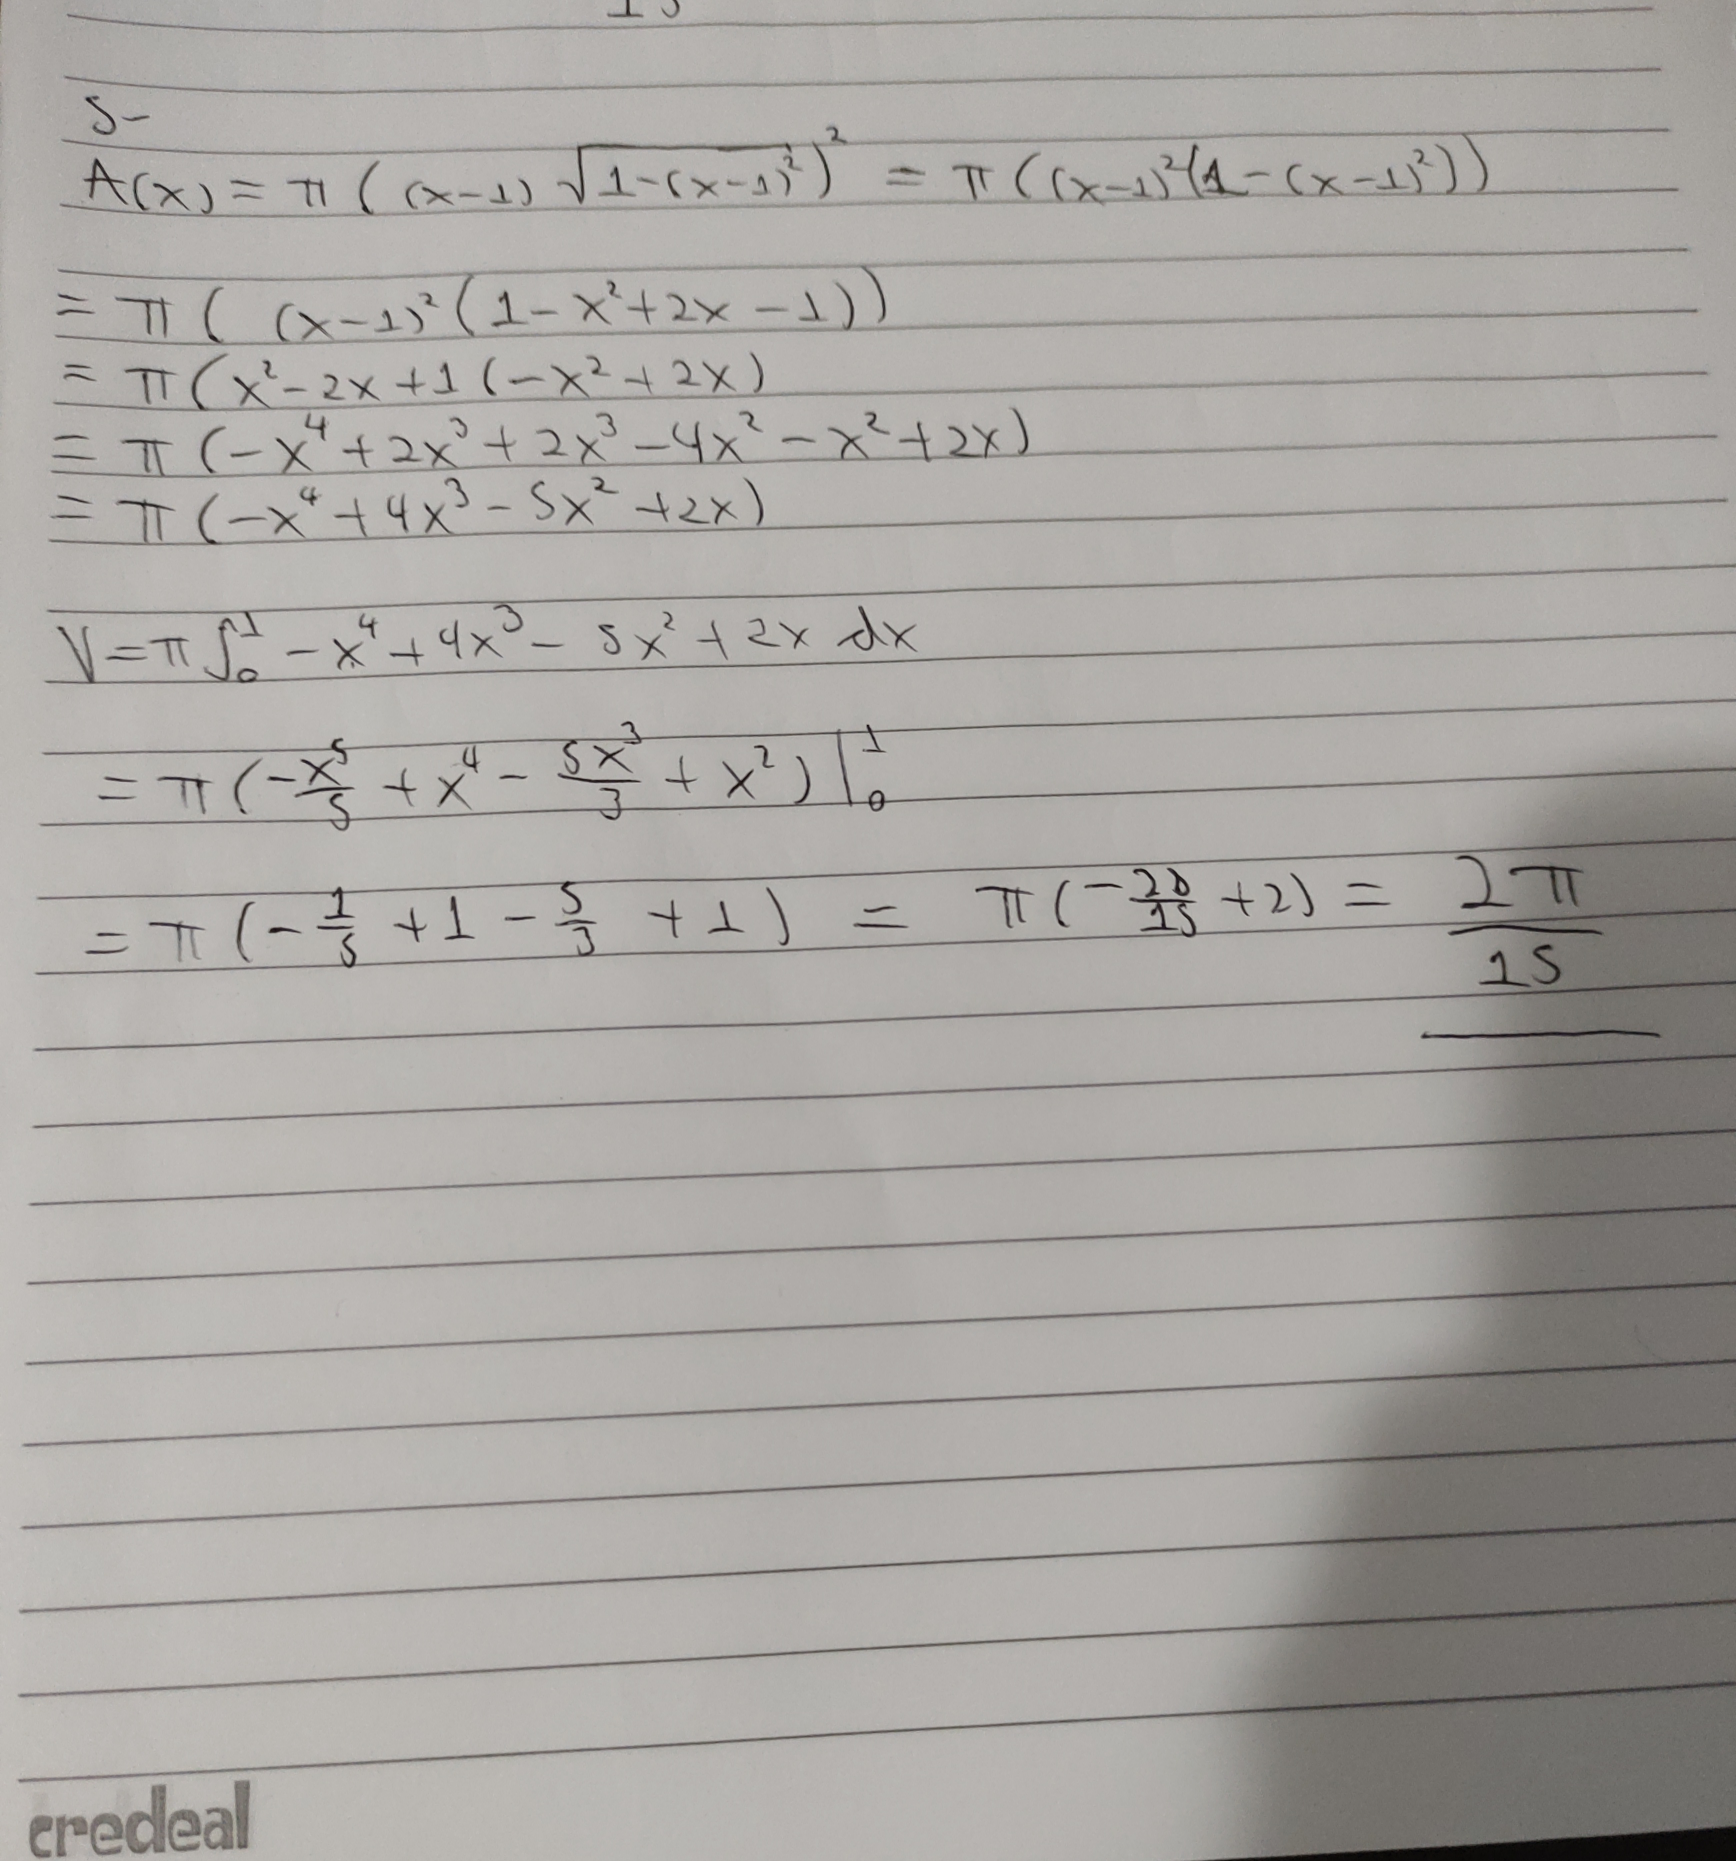 5-
A(x) = π ( (x-1) √(1-(x-1)²) )² = π ( (x-1)²(1-(x-1)²))
= π ( (x-1)² (1-x²+2x-1))
= π (x²-2x+1 (-x²+2x)
= π (-x⁴+2x³+2x³-4x²-x²+2x)
= π (-x⁴+4x³-5x²+2x)
V=π ∫₀¹ -x⁴+4x³-5x²+2x dx
= π (-x⁵/5 + x⁴ - 5x³/3 + x²) |₀¹
= π (-1/5 + 1 - 5/3 + 1) = π (-28/15 + 2) = 2π/15
credeal